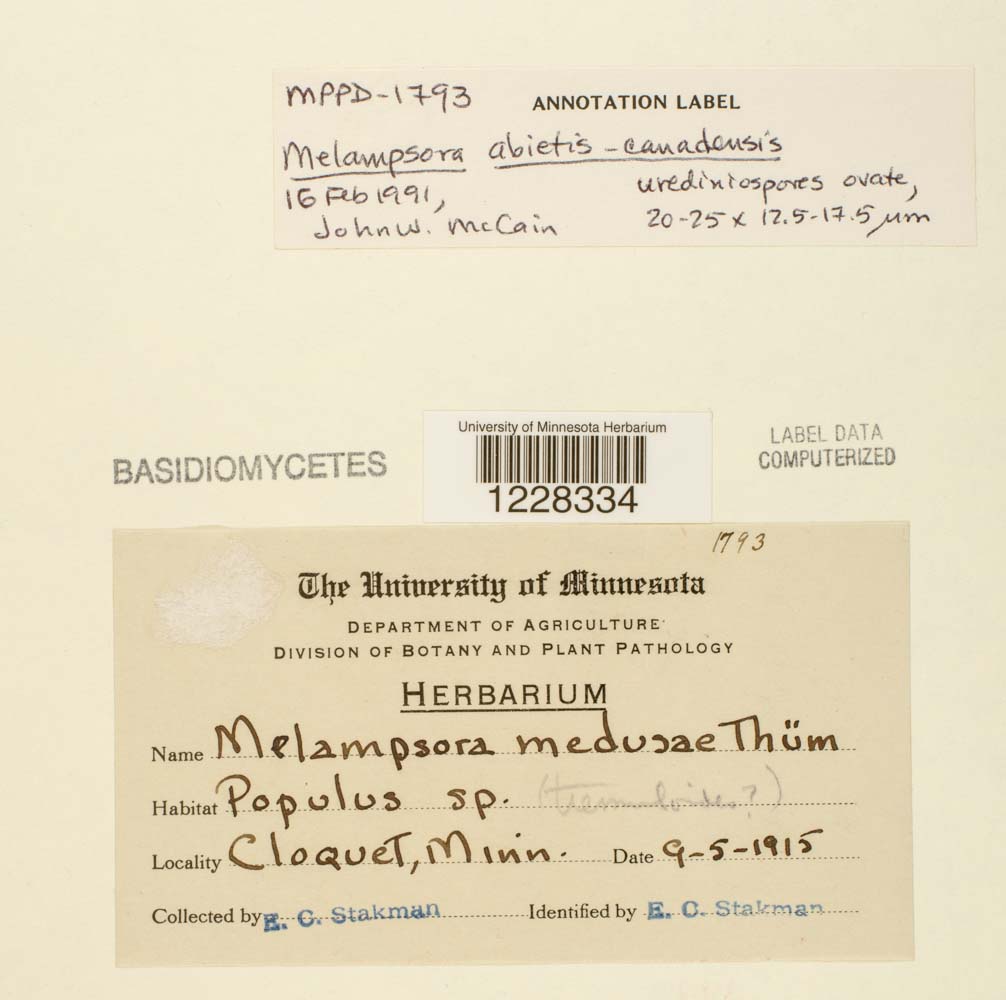 MPPD-1793
ANNOTATION LABEL
Melampsora abietis-canadensis
16 Feb 1991,
urediniospores ovate,
John W. McCain
20-25 x 12.5-17.5 µm
University of Minnesota Herbarium
BASIDIOMYCETES
1228334
LABEL DATA
COMPUTERIZED
1793
The University of Minnesota
DEPARTMENT OF AGRICULTURE
DIVISION OF BOTANY AND PLANT PATHOLOGY
HERBARIUM
Name Melampsora medusae Thüm
Habitat Populus sp. (tremuloides?)
Locality Cloquet, Minn. Date 9-5-1915
Collected by E. C. Stakman Identified by E. C. Stakman